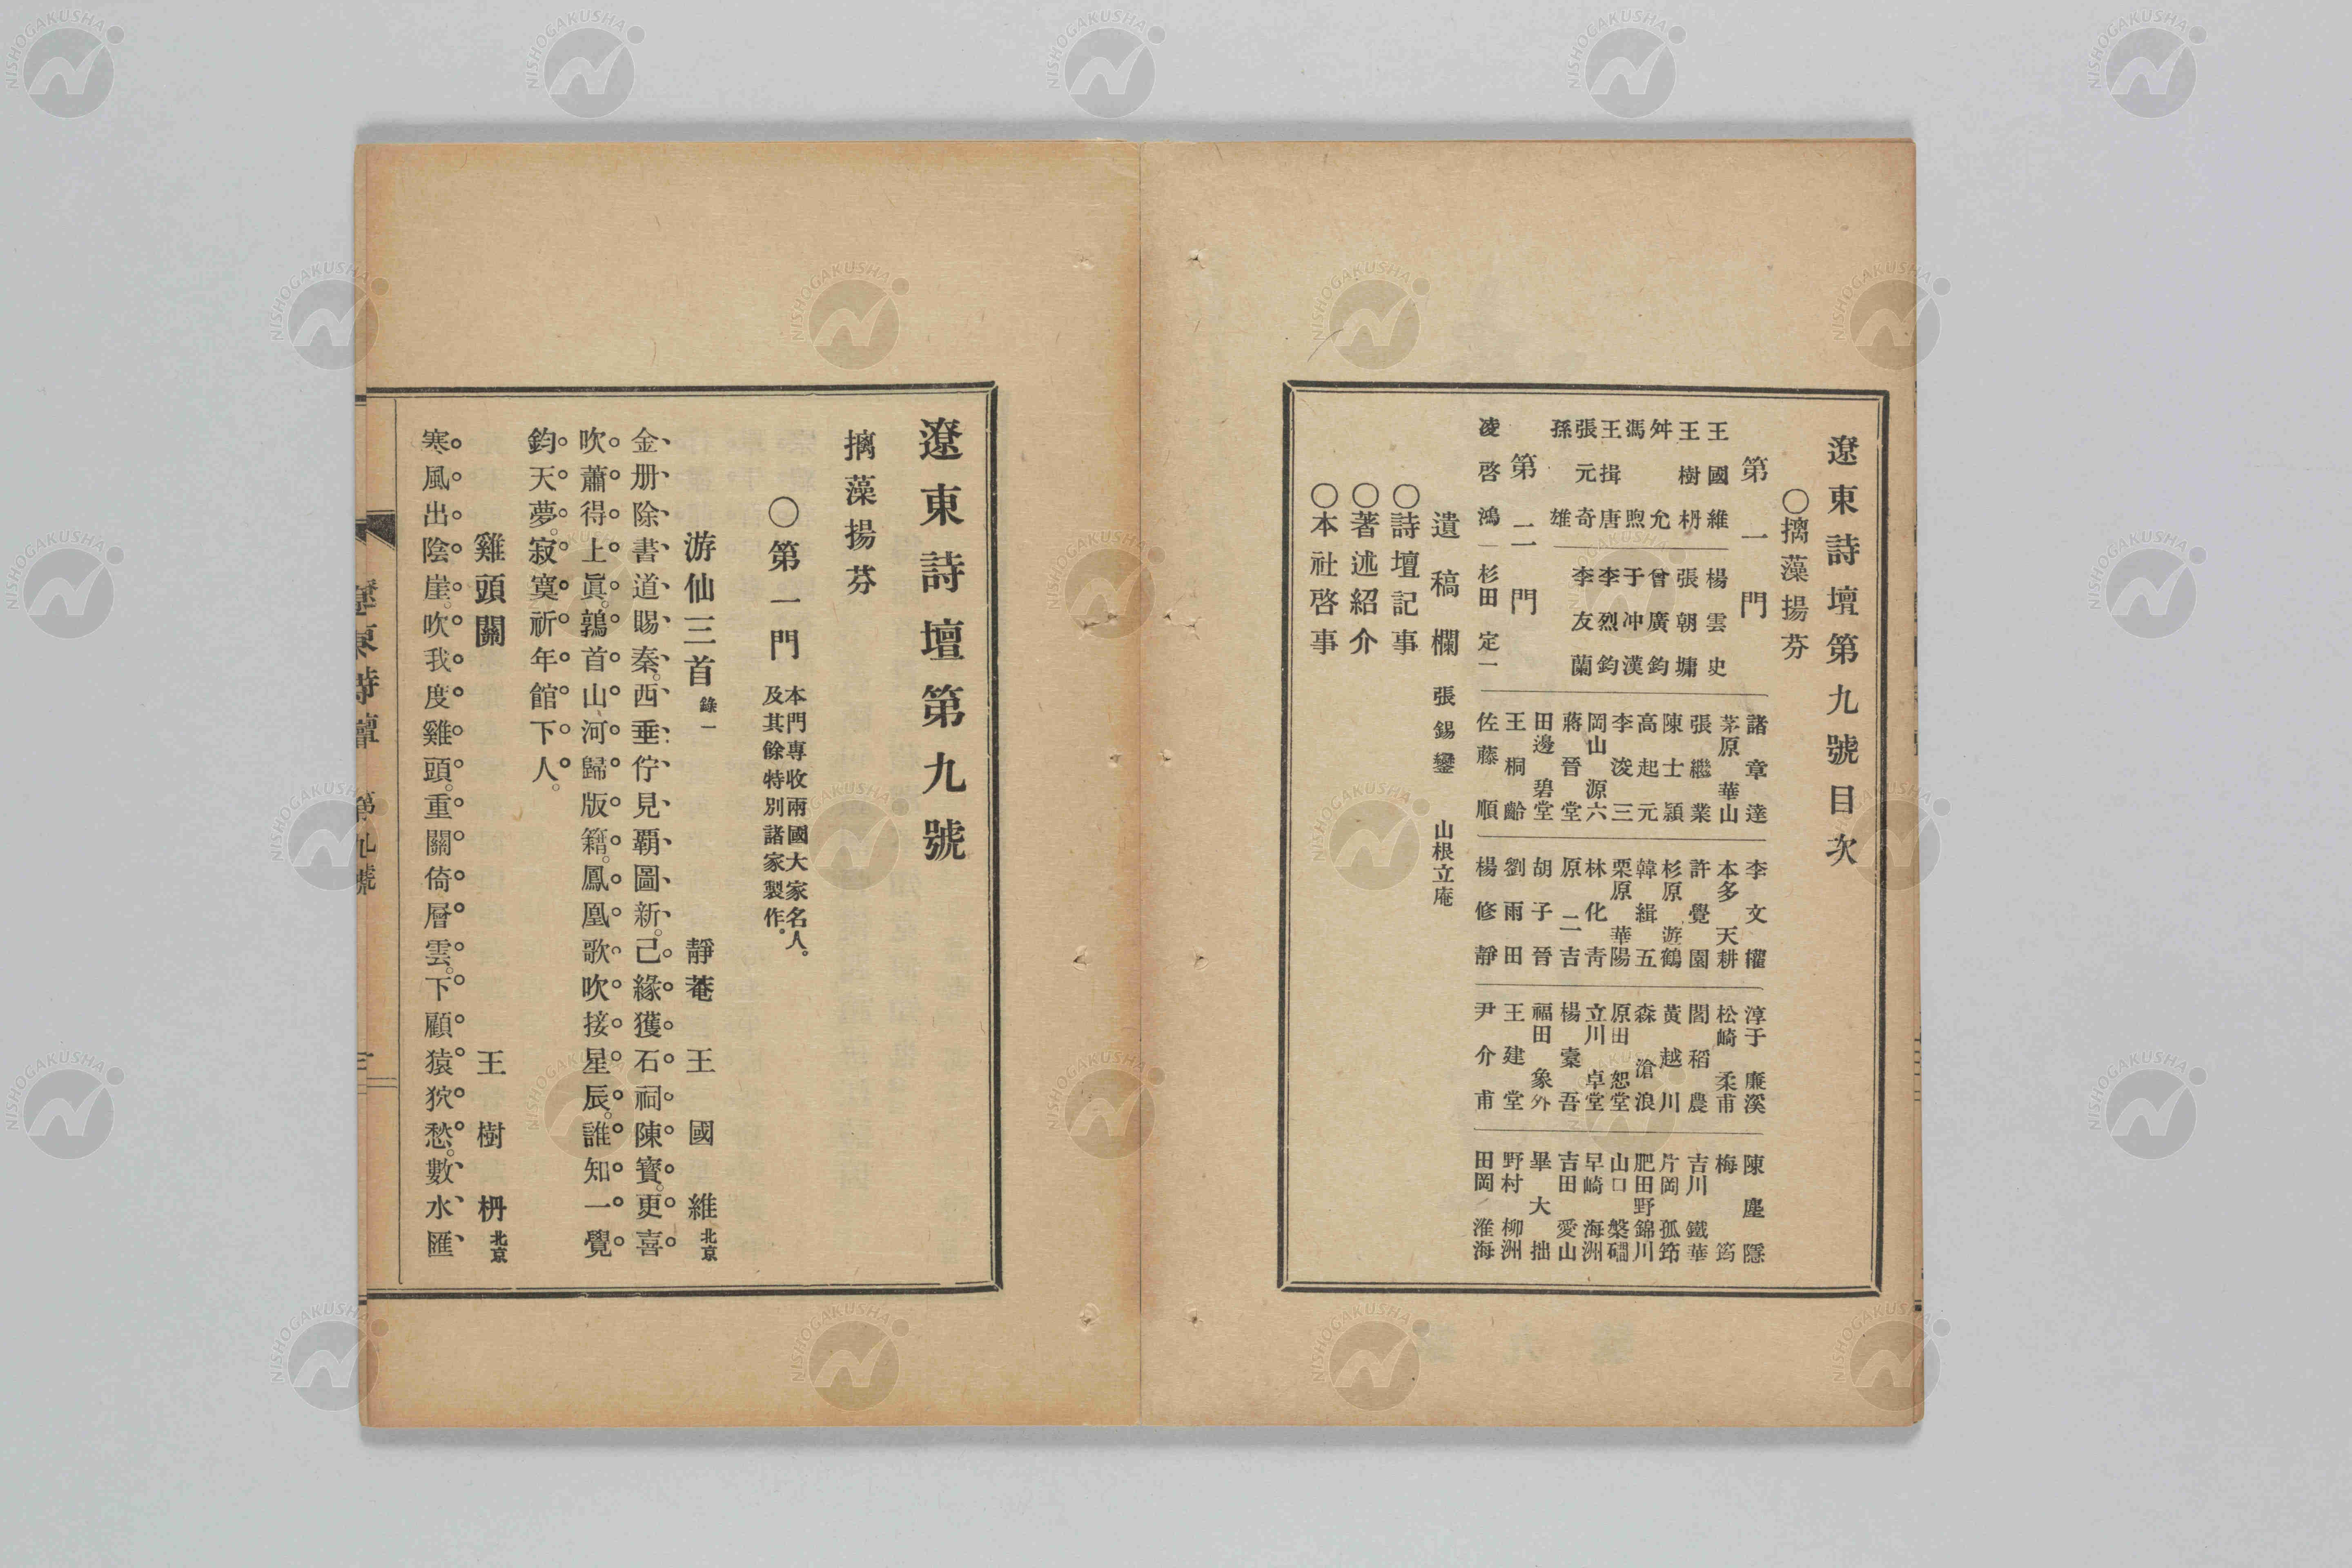 遼東詩壇第九號目次
〇摛藻揚芬
第一門
王國維　楊雲史
王樹枬　張朝墉
舛允　曾廣鈞
馮煦　于冲漢
王揖唐　李烈鈞
張元奇　李友蘭
孫雄
第二門
凌啓鴻　杉田定一
諸章達　李文權　淳于廉溪　陳塵隱
茅原華山　本多天耕　松崎柔甫　梅筠
張繼業　許覺園　閻稻農　吉川鐵華
陳士潁　杉原遊鶴　黃越川　片岡孤筇
高起元　韓緝五　森滄浪　肥田野錦川
李浚三　栗原華陽　原田恕堂　山口槃磵
岡山源六　林化靑　立川卓堂　早崎海洲
蔣晉堂　原二吉　楊槖吾　吉田愛山
田邊碧堂　胡子晉　福田象外　畢大拙
王桐齡　劉雨田　王建堂　野村柳洲
佐藤順　楊修靜　尹介甫　田岡淮海
遺稿欄　張錫鑾　山根立庵
〇詩壇記事
〇著述紹介
〇本社啓事
遼東詩壇第九號
摛藻揚芬
〇第一門　本門專收兩國大家名人。
及其餘特別諸家製作。
游仙三首　錄一　靜菴　王國維　北京
金册除書道賜秦。西垂佇見覇圖新。己緣獲石祠陳寶。更喜
吹蕭得上眞。鶉首山河歸版籍。鳳凰歌吹接星辰。誰知一覺
鈞天夢。寂寞祈年館下人。
雞頭關　王樹枬　北京
寒風出陰崖。吹我度雞頭。重關倚層雲。下顧猿狖愁。數水匯
遼東詩壇　第九號